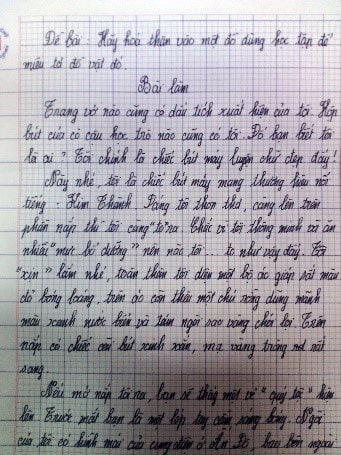 Đề bài : Hãy hóa thân vào một đồ dùng học tập để
miêu tả đồ vật đó.
Bài làm
Trang vở nào cũng có dấu tích xuất hiện của tôi. Hộp
bút của cô cậu học trò nào cũng có tôi. Đố bạn biết tôi
là ai ? Tôi chính là chiếc bút máy luyện chữ đẹp đấy!
Này nhé, tôi là chiếc bút máy mang thương hiệu nổi
tiếng : Kim Thành. Dáng tôi thon thả, càng lên trên
phần nắp thì tôi càng to ra. Chắc vì tôi thông minh và ăn
nhiều "mực bổ dưỡng" nên não tôi ... to như vậy đấy. Tôi
"xịn" lắm nhé, toàn thân tôi diện một bộ áo giáp sắt màu
đỏ bóng loáng, trên áo còn thêu một chú rồng dũng mãnh
màu xanh nước biển và tám ngôi sao vàng chói lọi. Trên
nắp có chiếc cài bút xinh xắn, mạ vàng trông rất
sang.
Nếu mở nắp tôi ra, bạn sẽ thấy một vẻ "quý tộc" hiện
lên. Trước mắt bạn là một lớp tay cầm sáng bóng. Ngòi
của tôi có hình mái của cung điện ở Ấn Độ, bao bên ngoài